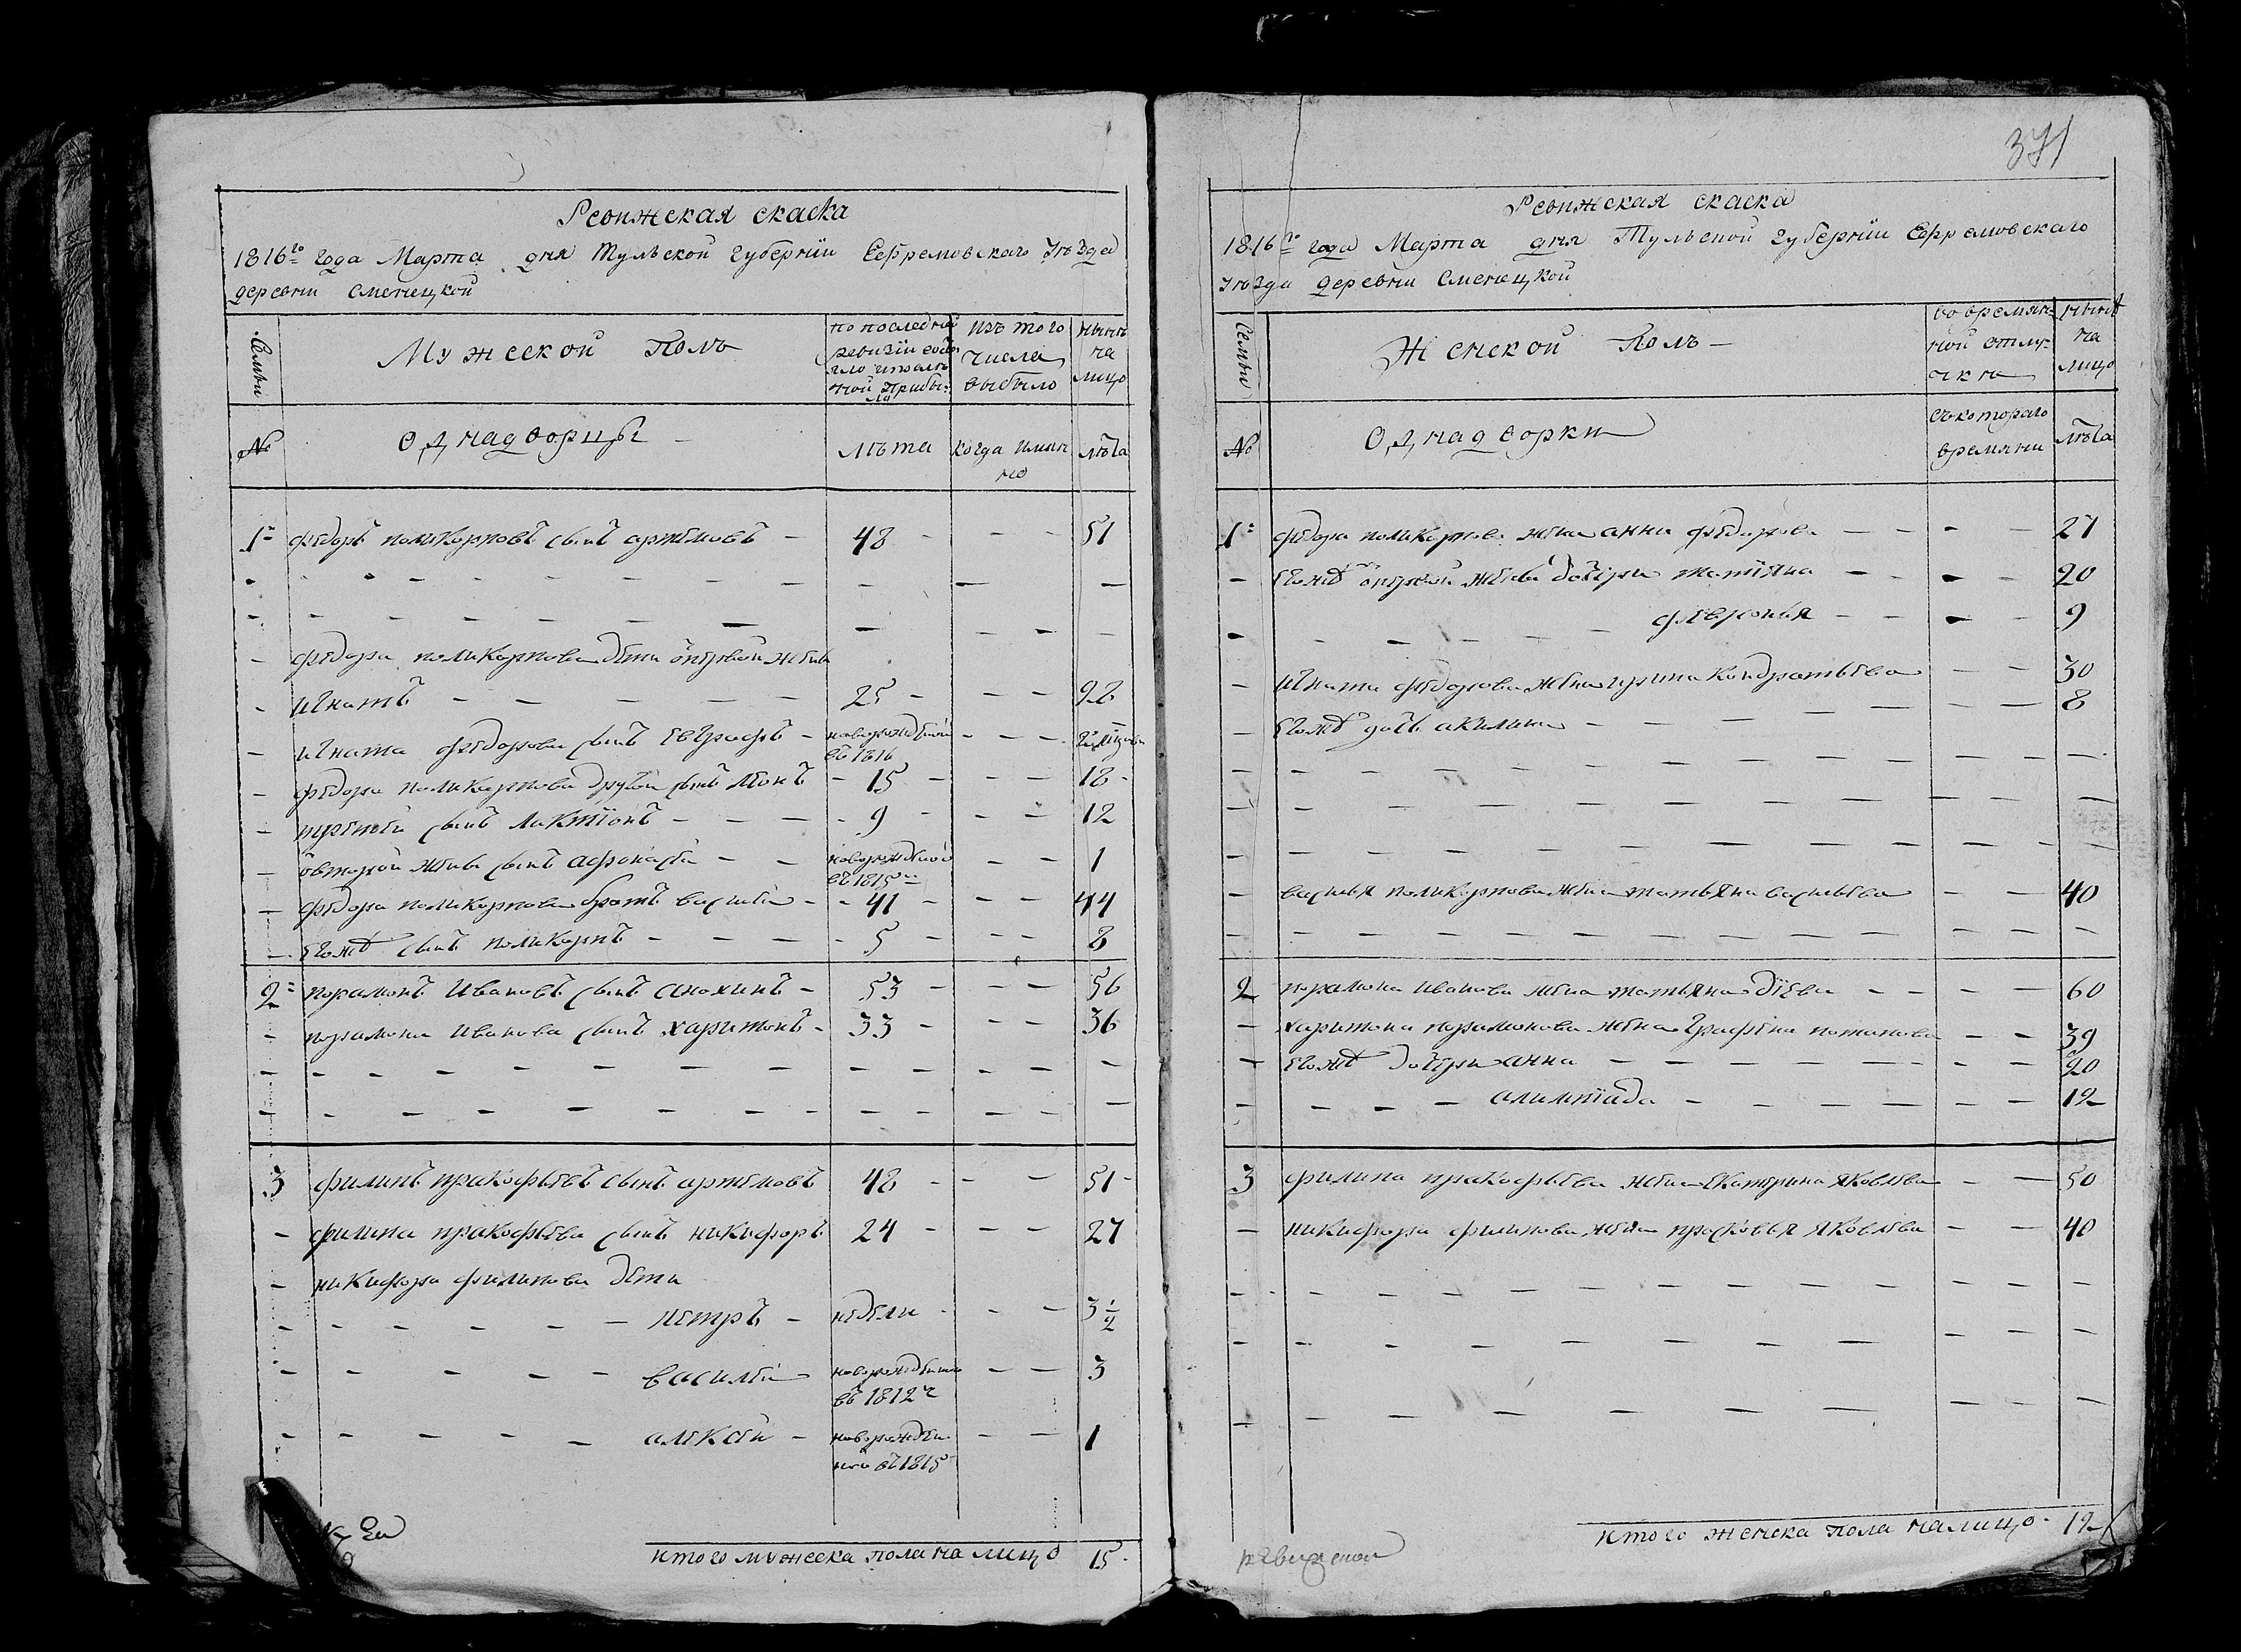 Ревижская скаска
1816го года Марта дня Тульской губернiи Ефремовскаго Уѣзда
деревни Сменецкой
Семьи
Мужеской Полъ
по последней
ревизiи состо
яло и после
оной прибы-
ло
изъ того
числа
выбыло
нынѣ
на
лицо
№
Однадворцы
лѣта
когда имян
но
лѣта
1 федоръ поликарповъ сынъ артемовъ 48 51
федора поликарпова дети отпервой жены
игнатъ 25 28
игната федорова сынъ евграфъ новорожденной
въ 1816
федора поликарпова другой сынъ леонъ 15 18
третей сынъ лактiонъ 9 12
отвторой жены сынъ афонасей новорожденной 1
въ 1815
федора поликарпова братъ василей 41 44
егожъ сынъ поликарпъ 5 8
2 парамонъ Ивановъ сынъ анохинъ 53 56
парамона Иванова сынъ харитонъ 33 36
3 филипъ пракофьевъ сынъ артемовъ 48 51
филипа пракофьева сынъ никифоръ 24 27
никифора филипова дети
петръ недели 3 1/2
василей новорожденной 3
въ 1812
алексей новорожден 1
ной въ 1815
итого мужеска пола на лицо 15
371
Ревижская скаска
1816го года Марта дня Тульской губернiи Ефремовскаго
Уѣзда деревни Сменецкой
Семьи
Женской Полъ
во времян-
ной отлу-
чкѣ
нынѣ
на
лицо
№
Однадворки
съкотораго
времяни
лѣта
1 федора поликарпова жена анна федорова 27
егожъ отпервой жены дочери татiяна 20
февронья 9
игната федорова жена ирина кондратьева 30
егожъ дочь акилина 8
василья поликарпова жена татьяна васильева 40
2 парамона иванова жена татьяна дiева 60
харитона парамонова жена аграфена потапова 39
егожъ дочери анна 20
алимпiада 12
3 филипа пракофьева жена екатерина яковлева 50
никифора филипова жена прасковья яковлева 40
итого женска пола налицо 12